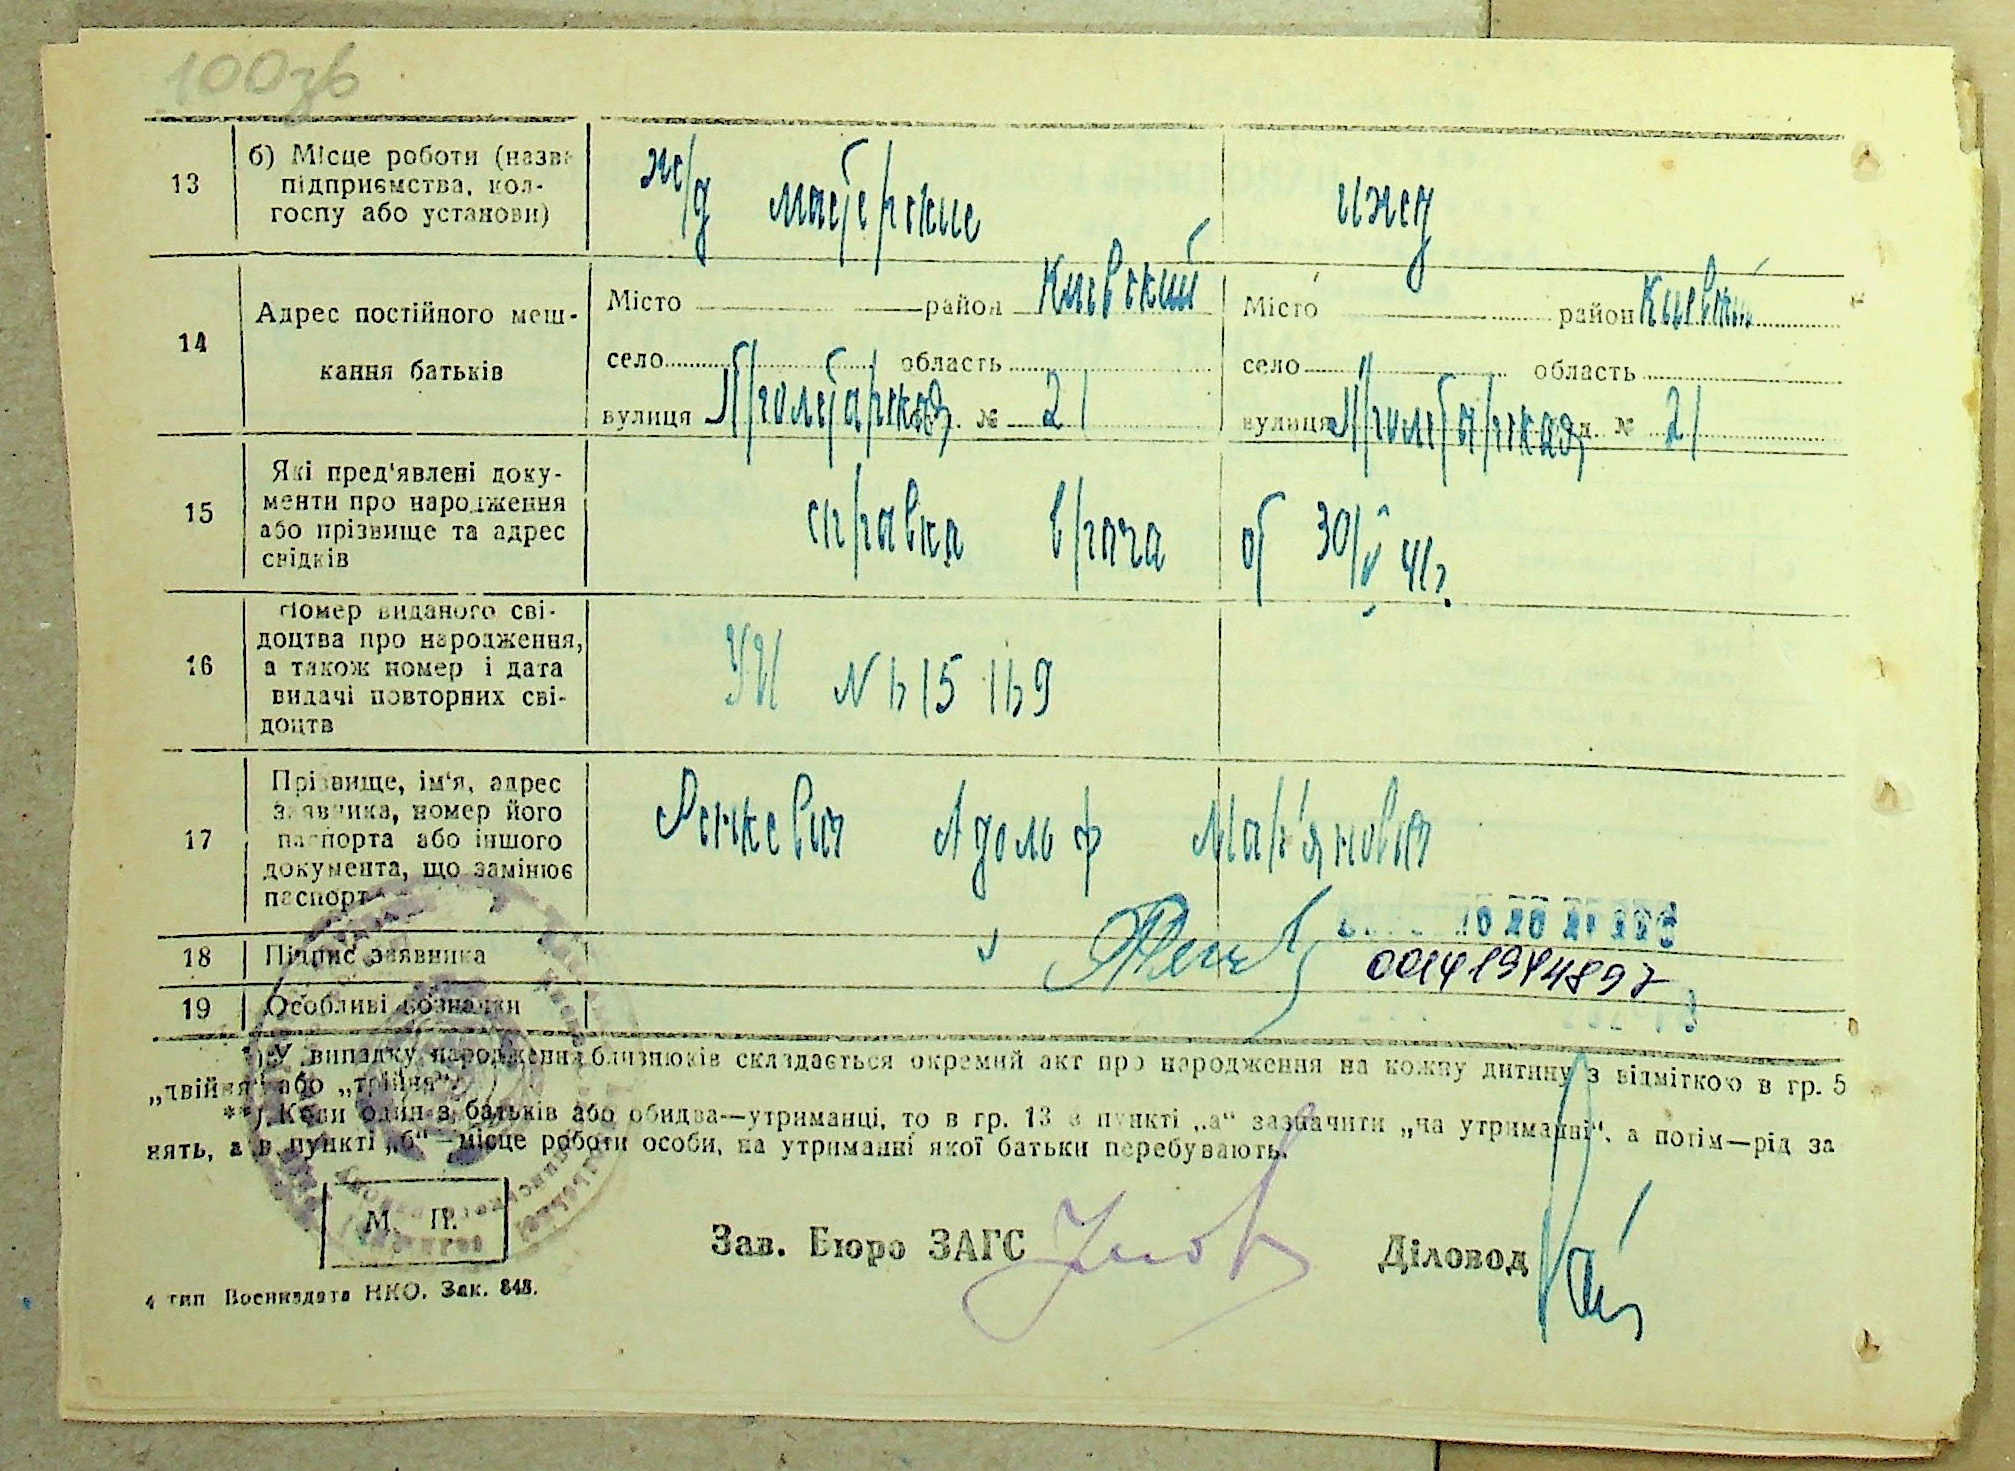 100зв
13
б) Місце роботи (назва
підприємства, кол-
госпу або установи)
ж/д мастерские
ижд
14
Адрес постійного меш-
кання батьків
Місто район Киевский
село область
вулиця Пролетарская № 21
Місто район Киевский
село область
вулиця Пролетарская д. № 21
15
Які пред'явлені доку-
менти про народження
або прізвище та адрес
свідків
справка врача от 30/V 41г.
16
Номер виданого сві-
доцтва про народження,
а також номер і дата
видачі повторних сві-
доцтв
№
17
Прізвище, ім'я, адрес
заявника, номер його
паспорта або іншого
документа, що замінює
паспорт
Адольф Мар'янович
18
Підпис заявника
19
Особливі відзначки
*) У випадку народження близнюків складається окремий акт про народження на кожну дитину з відміткою в гр. 5
„двійня“ або „трійня“.
**) Коли один з батьків або обидва—утриманці, то в гр. 13 в пункті „а“ зазначити „на утриманні“, а потім—рід за
нять, а в пункті „б“—місце роботи особи, на утриманні якої батьки перебувають.
М. П.
Зав. Бюро ЗАГС
Діловод
4 тип Воениздата НКО. Зак. 848.